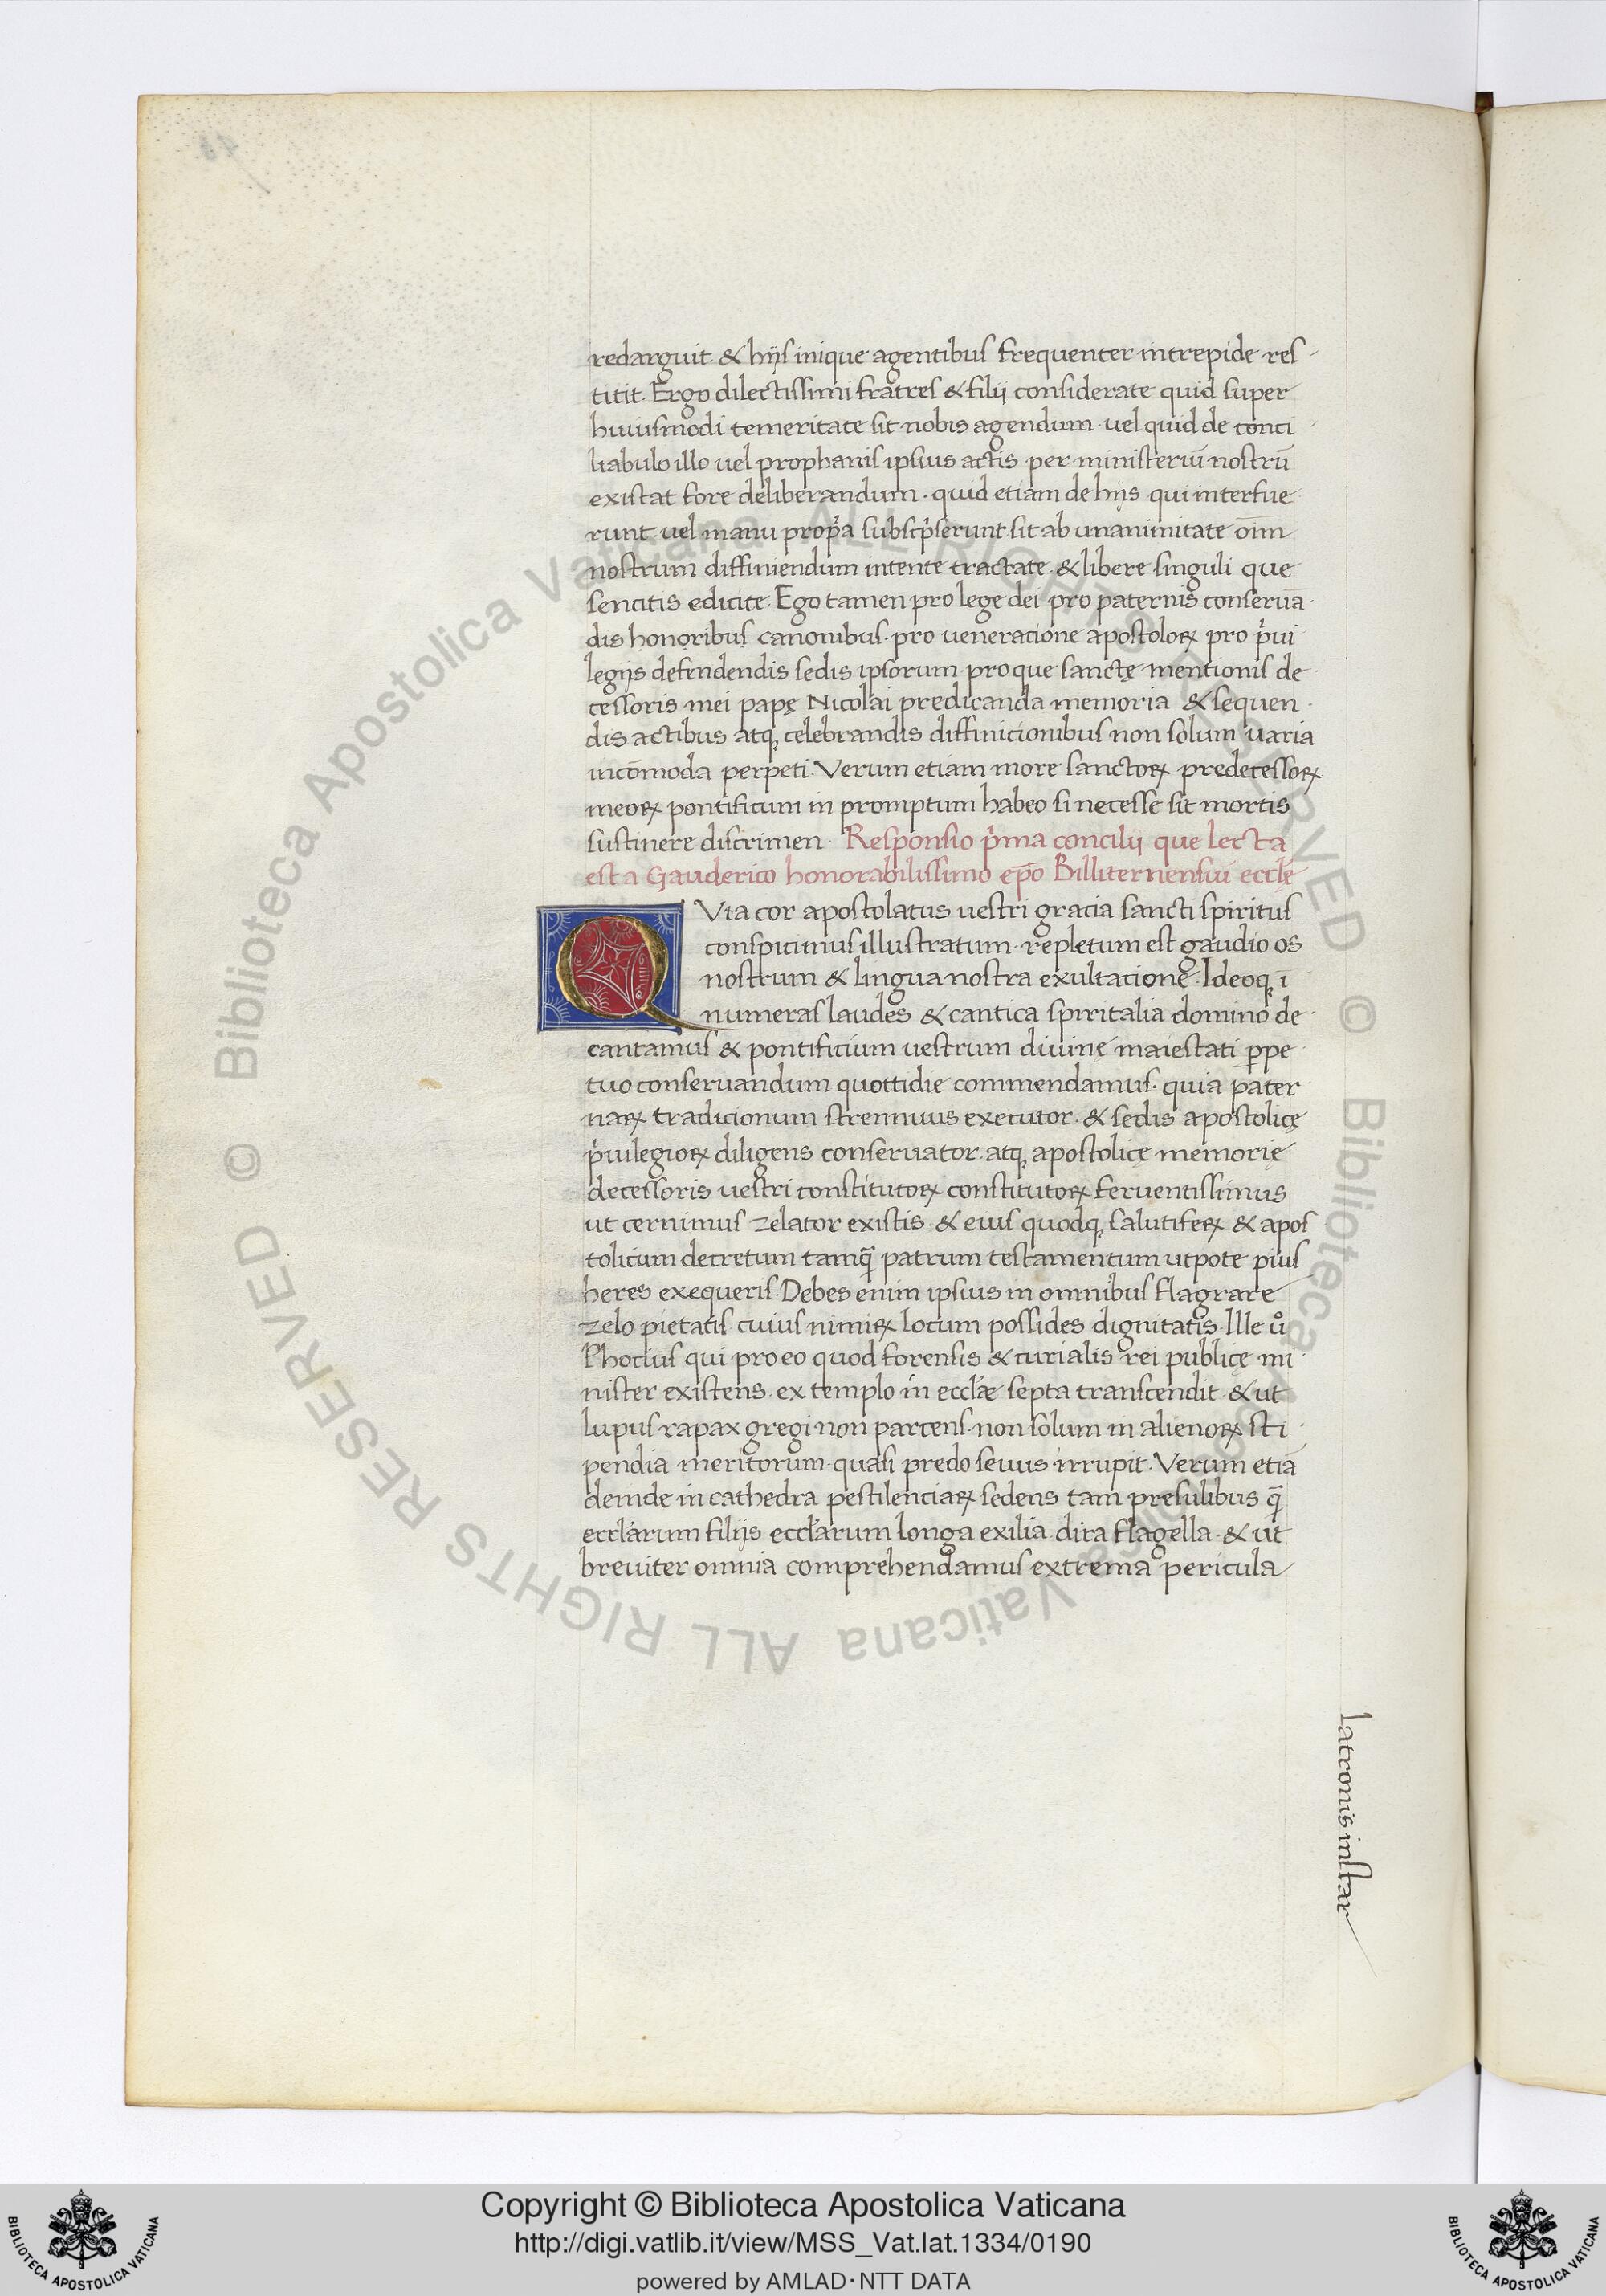 redarguit & hijs inique agentibus frequenter intrepide res-
titit. Ergo dilectissimi fratres & filij considerate quid super
huiusmodi temeritate sit nobis agendum uel quid de conci-
liabulo illo uel prophanis ipsius actis per ministeriū nostrū
existat fore deliberandum. quid etiam de hijs qui interfue
runt uel manu prop̍a subsc̍pserunt sit ab unanimitate om̄
nostrum diffiniendum intente tractate. & libere singuli que
sentitis edicite. Ego tamen pro lege dei pro paternis conseruā
dis honoribus canonibus. pro ueneracione apostoloꝝ pro p̍ui
legijs defendendis sedis ipsorum. pro que sanctę mentionis de
cessoris mei papę Nicolai predicanda memoria & sequen-
dis actibus atq; celebrandis diffinicionibus non solum uaria
incōmoda perpeti. Verum etiam more sanctoꝝ predecessoꝝ
meoꝝ pontificum in promptum habeo si necesse sit mortis
sustinere discrimen. Responsio p̍ma concilij que lecta
est a Gauderico honorabilissimo ep̄o Billiternensiui eccłę
QVia cor apostolatus uestri gracia sancti spiritus
conspicimus illustratum. repletum est gaudio os
nostrum & lingua nostra exultacione. Ideoq; ī
numeras laudes & cantica spiritalia domino de-
cantamus & pontificium uestrum diuinę maiestati ꝑpe
tuo conseruandum quottidie commendamus. quia pater
naꝝ tradicionum strennuus executor. & sedis apostolicę
p̍uilegioꝝ diligens conseruator. atq; apostolicę memorię
decessoris uestri constitutoꝝ constitutoꝝ feruentissimus
ut cernimus zelator existis & eius quodq; salutifeꝝ & apos
tolicum decretum tamq̄ patrum testamentum utpote pius
heres exequeris. Debes enim ipsius in omnibus flagrare
zelo pietatis cuius nimiꝝ locum possides dignitatis. Ille ů
Photius qui pro eo quod forensis & curialis rei publicę mi-
nister existens. ex templo in eccłæ septa transcendit. & ut
lupus rapax gregi non parcens. non solum in alienoꝝ sti-
pendia meritorum. quasi predo seuus irrupit. Verum etiā
deinde in cathedra pestilenciaꝝ sedens tam presulibus q̄
eccłarum filijs eccłarum longa exilia dira flagella. & ut
breuiter omnia comprehendamus extrema pericula
latronis instar
© Biblioteca Apostolica Vaticana ALL RIGHTS RESERVED
© Biblioteca Apostolica Vaticana ALL RIGHTS RESERVED
BIBLIOTECA APOSTOLICA VATICANA
Copyright © Biblioteca Apostolica Vaticana
http://digi.vatlib.it/view/MSS_Vat.lat.1334/0190
powered by AMLAD·NTT DATA
BIBLIOTECA APOSTOLICA VATICANA